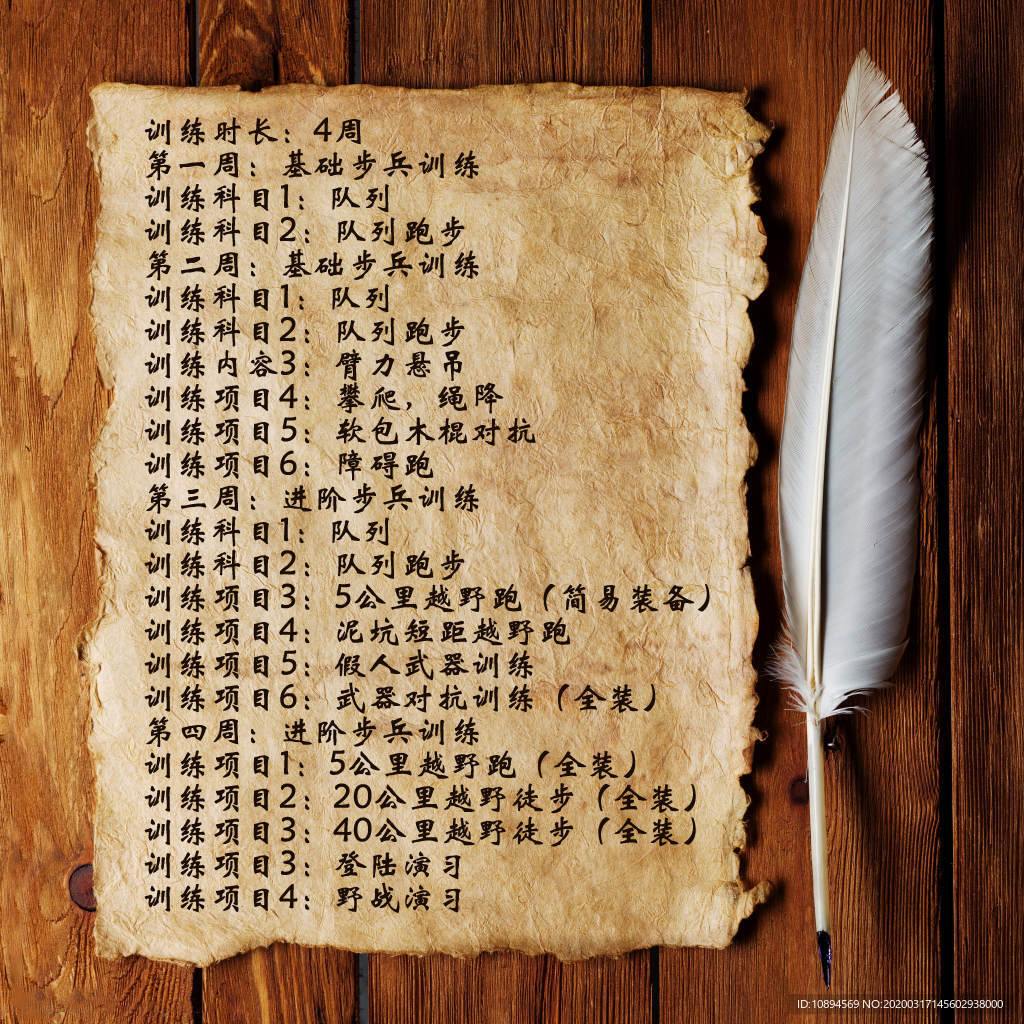 训练时长：4周
第一周：基础步兵训练
训练科目1：队列
训练科目2：队列跑步
第二周：基础步兵训练
训练科目1：队列
训练科目2：队列跑步
训练内容3：臂力悬吊
训练项目4：攀爬，绳降
训练项目5：软包木棍对抗
训练项目6：障碍跑
第三周：进阶步兵训练
训练科目1：队列
训练科目2：队列跑步
训练项目3：5公里越野跑（简易装备）
训练项目4：泥坑短距越野跑
训练项目5：假人武器训练
训练项目6：武器对抗训练（全装）
第四周：进阶步兵训练
训练项目1：5公里越野跑（全装）
训练项目2：20公里越野徒步（全装）
训练项目3：40公里越野徒步（全装）
训练项目3：登陆演习
训练项目4：野战演习
ID:10894569 NO:20200317145602938000